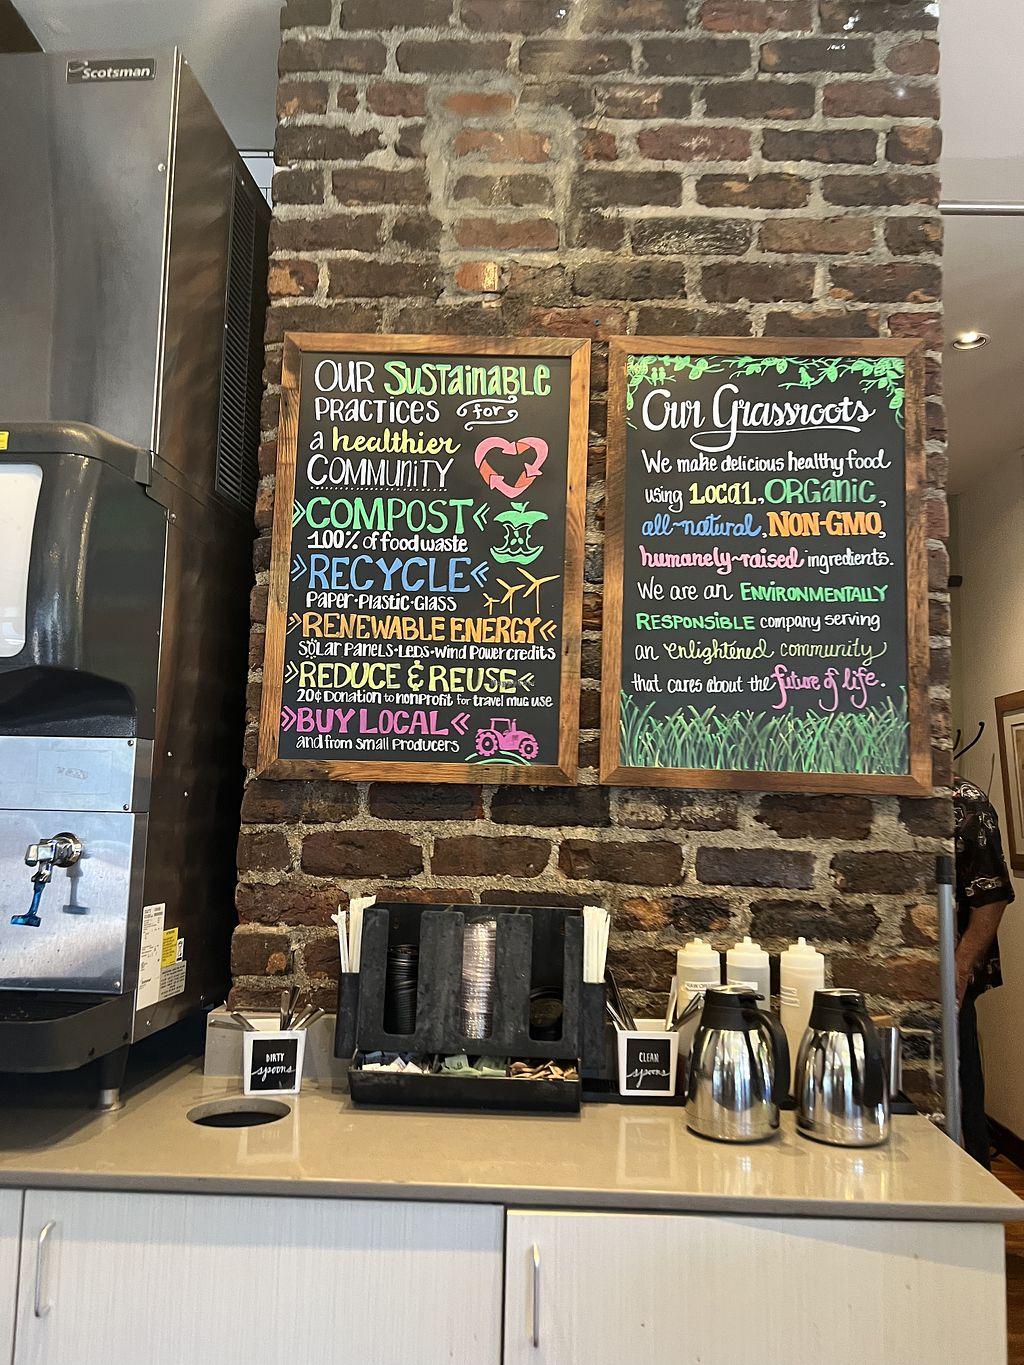 Scotsman
OUR SUSTAINABLE
PRACTICES for
a healthier
COMMUNITY
COMPOST
100% of food waste
RECYCLE
PAPER • PLASTIC • GLASS
RENEWABLE ENERGY
SOLAR PANELS • LEDS • WIND POWER CREDITS
REDUCE & REUSE
20¢ DONATION to NONPROFIT for TRAVEL MUG USE
BUY LOCAL
and from small PRODUCERS
Our Grassroots
We make delicious healthy food
using LOCAL, ORGANIC,
all-natural, NON-GMO,
humanely-raised ingredients.
We are an ENVIRONMENTALLY
RESPONSIBLE company serving
an enlightened community
that cares about the future of life.
DIRTY
spoons
CLEAN
spoons